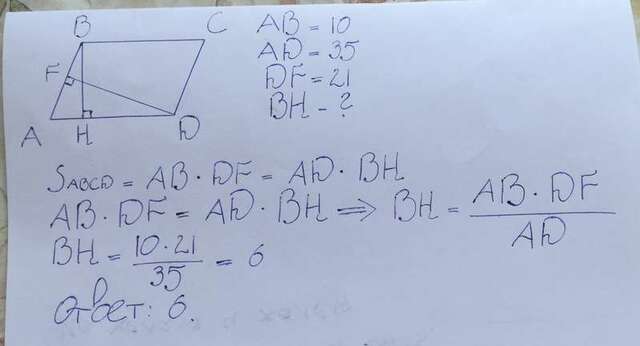 B C
F
A H D
AB = 10
AD = 35
DF = 21
BH - ?
SABCD = AB · DF = AD · BH
AB · DF = AD · BH ⟹ BH = AB · DF / AD
BH = 10 · 21 / 35 = 6
Ответ: 6.